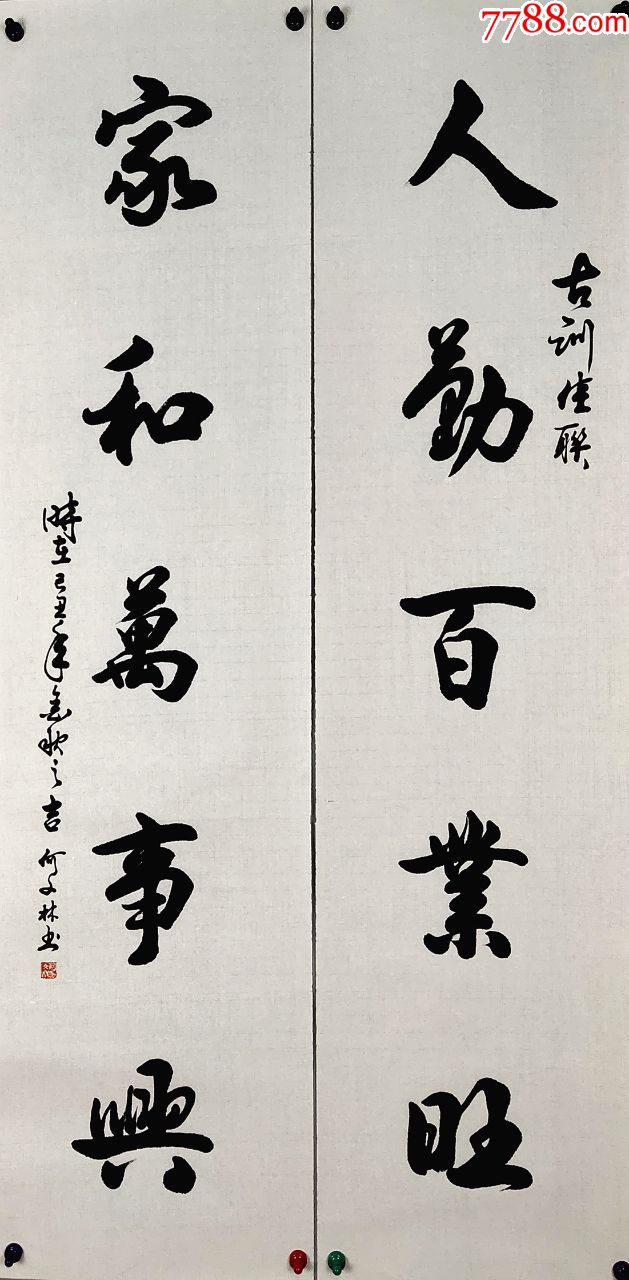 7788.com
人勤百業旺
古訓佳聯
家和萬事興
時在己丑年金秋之吉 何文林书